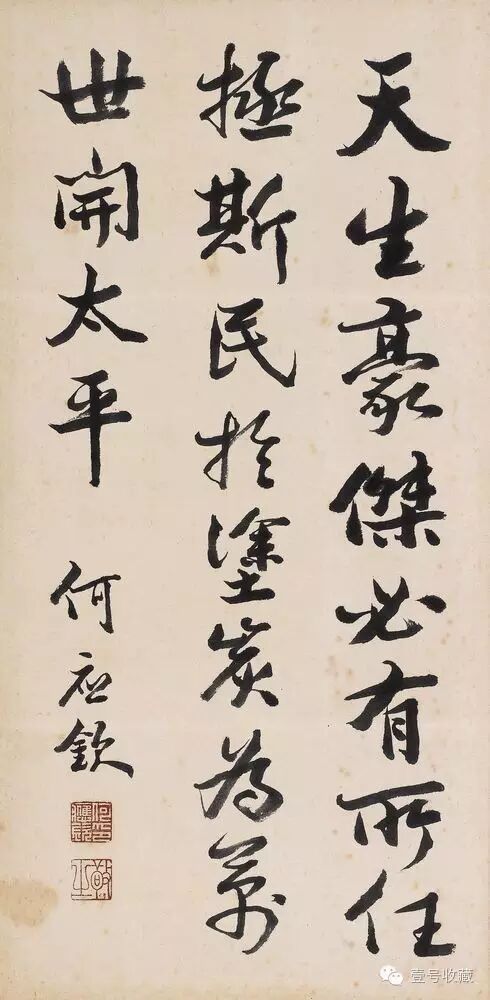 天生豪傑必有所任
拯斯民於塗炭為萬
世開太平
何应欽
何應欽印
敬之
壹号收藏